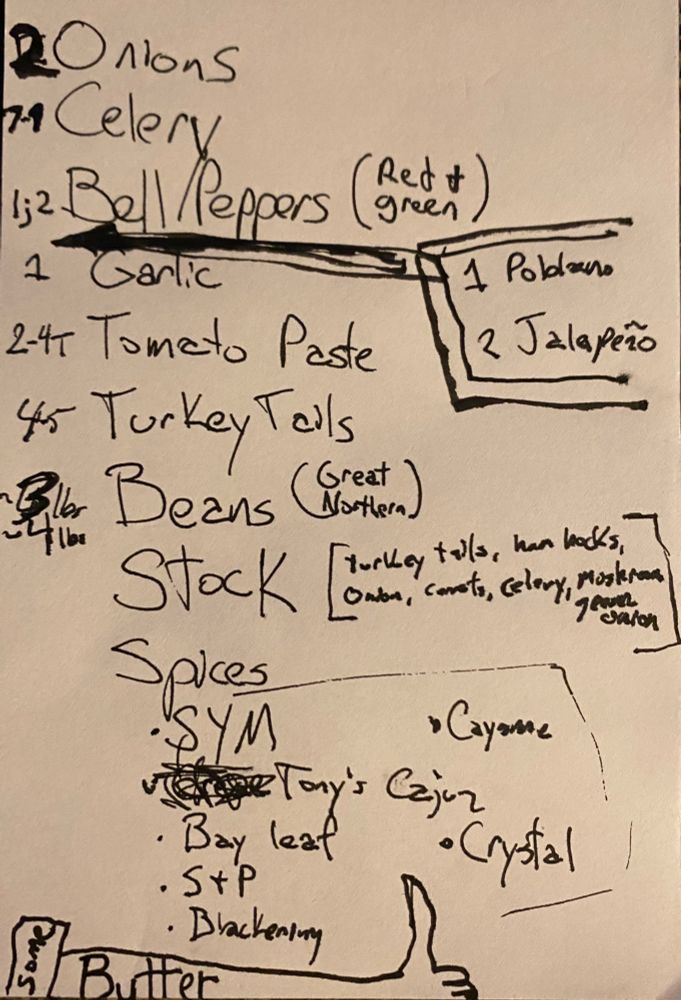 2 Onions
7-9 Celery
1;2 Bell Peppers (Red + green)
1 Garlic
1 Poblano
2-4T Tomato Paste
2 Jalapeño
4-5 Turkey Tails
~3lbs Beans (Great Northern)
~4lbs
Stock [turkey tails, ham hocks,
Onion, carrots, celery, mushroom
green onion]
Spices
· SYM
· Cayenne
Tony's Cajun
· Bay leaf
· Crystal
· S+P
· Blackening
some Butter